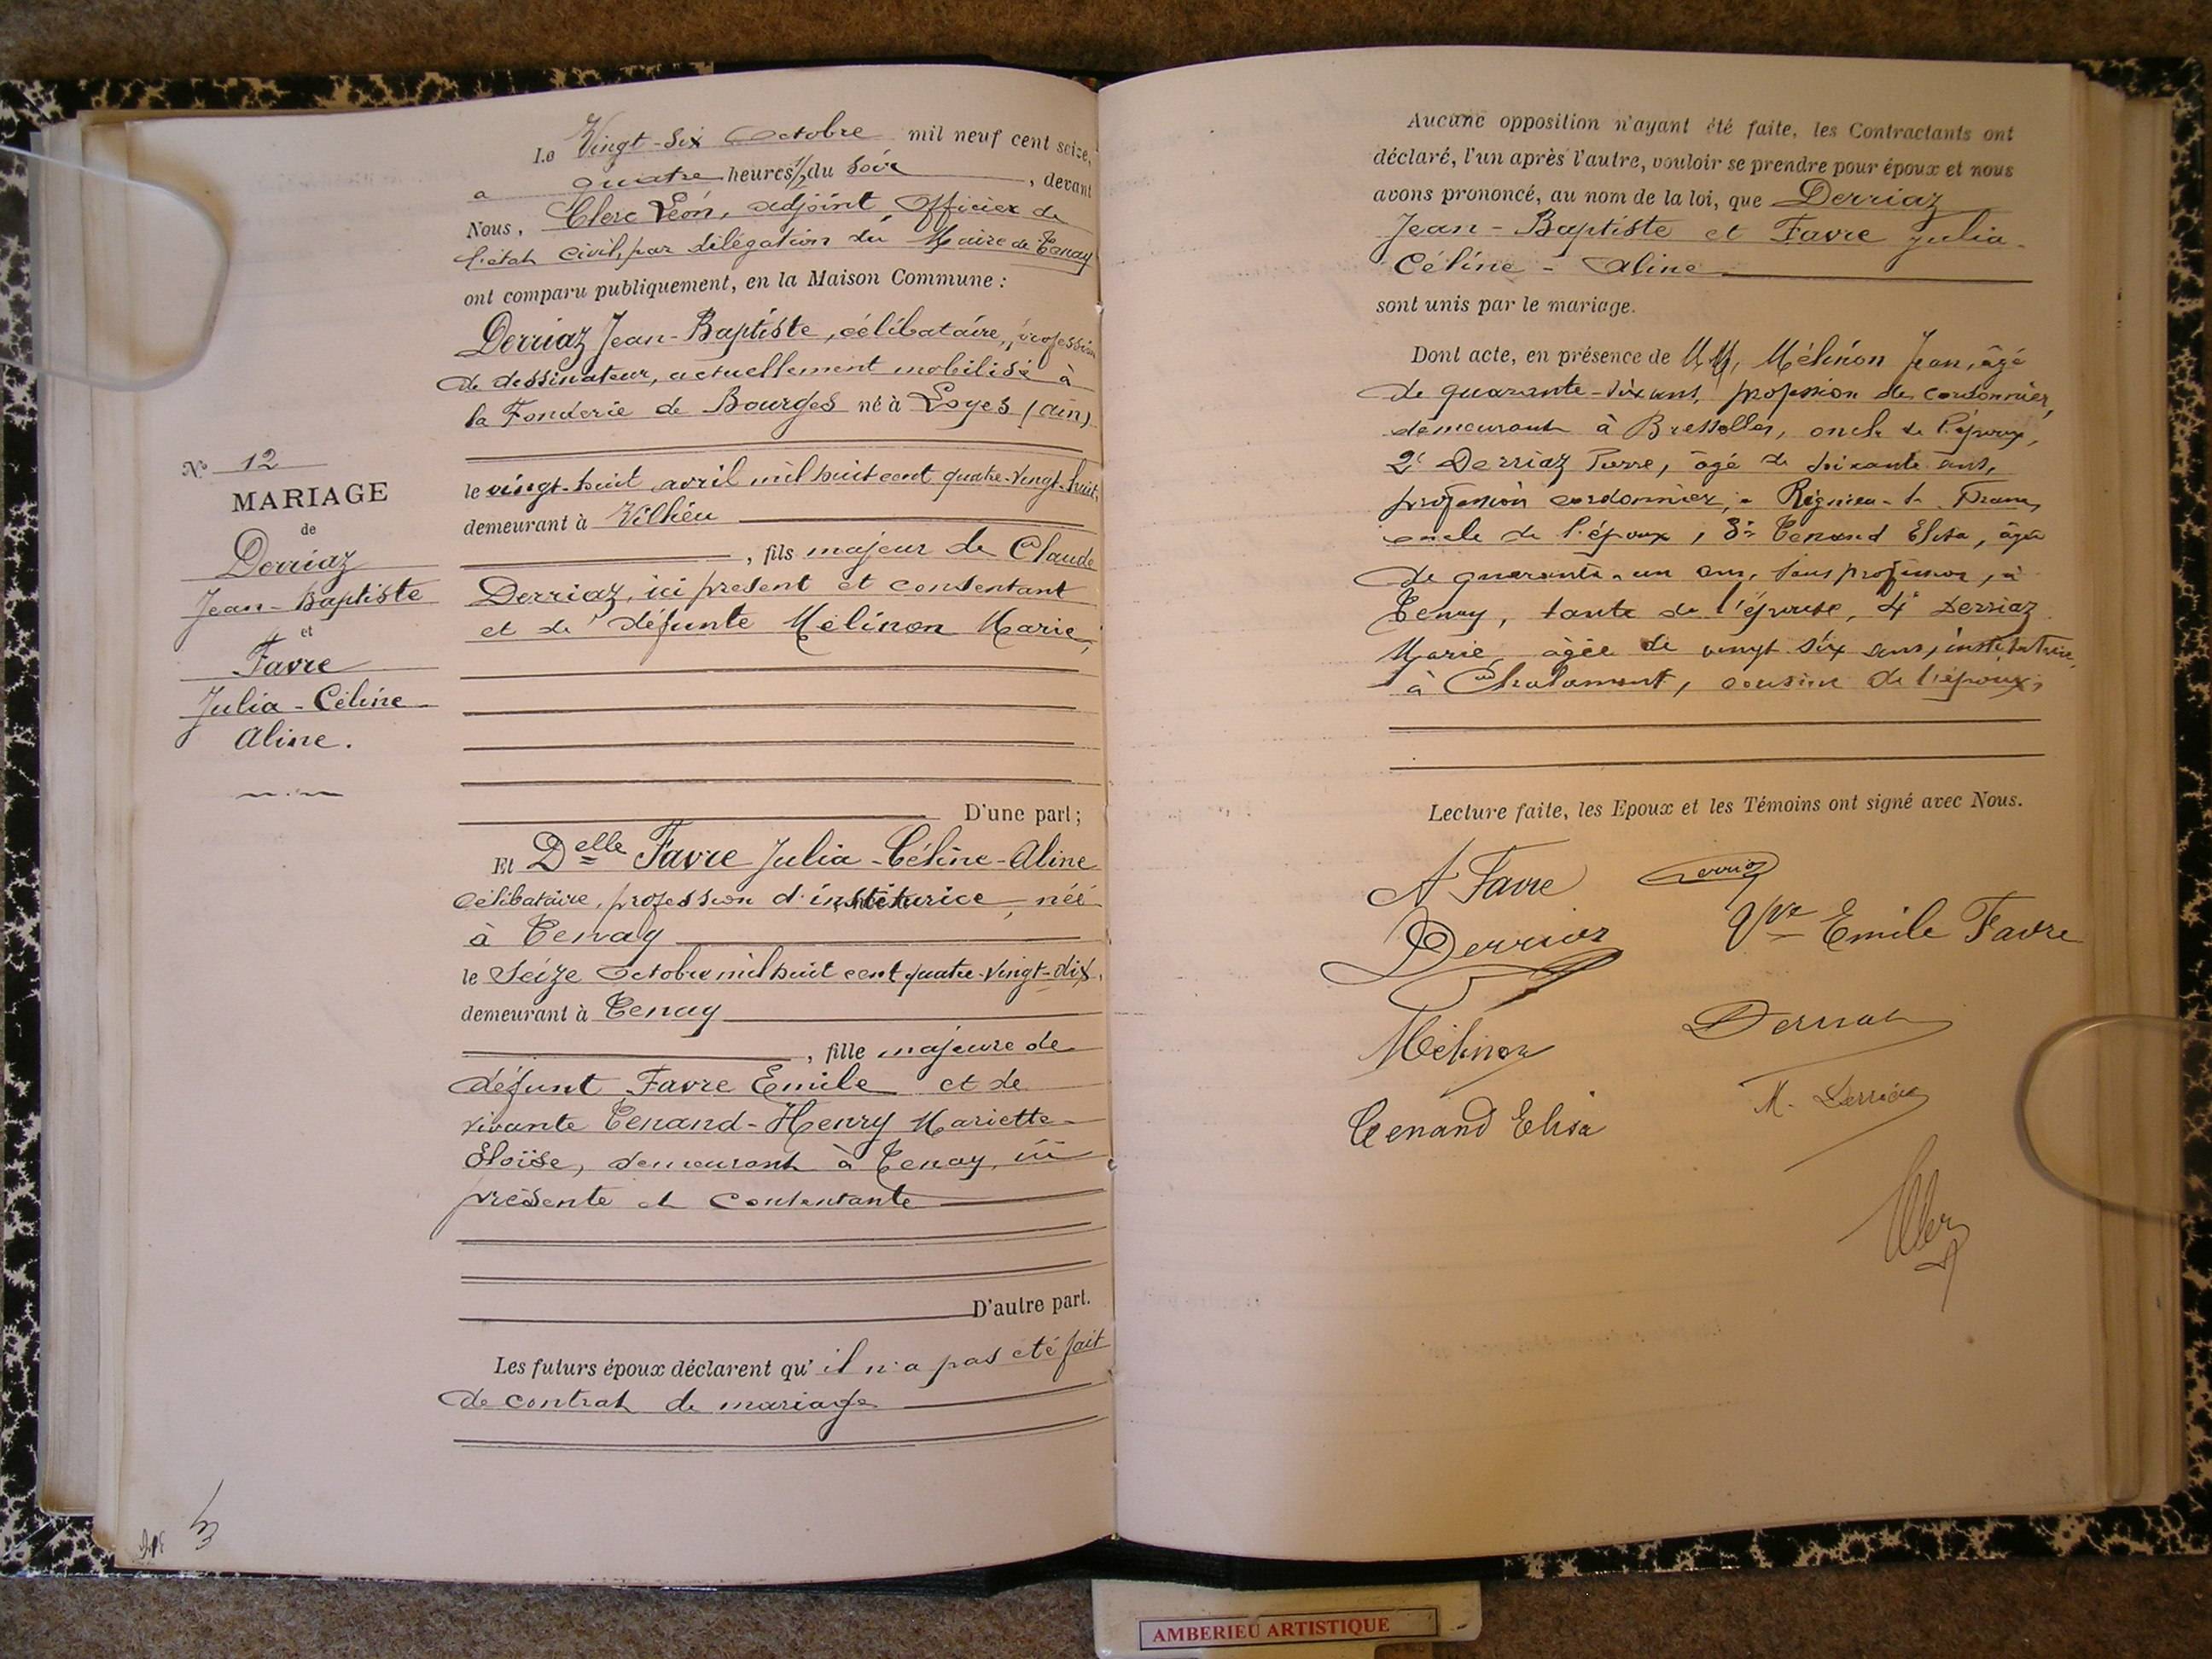 Le Vingt-Six Octobre mil neuf cent seize,
a quatre heures 1/2 du soir, devant
Nous, Clerc Léon, adjoint, Officier de
l'état civil, par délégation du Maire de Tenay
ont comparu publiquement, en la Maison Commune :
Derriaz Jean-Baptiste, célibataire, profession
de dessinateur, actuellement mobilisé à
la Fonderie de Bourges né à Loyes (Ain)
le vingt-huit avril mil huit cent quatre-vingt-huit,
demeurant à Vilhieu
, fils majeur de Claude
Derriaz, ici présent et consentant
et de défunte Mélinon Marie,
D'une part;
Et Delle Favre Julia-Céline-Aline
célibataire, profession d'institutrice, née
à Tenay
le Seize Octobre mil huit cent quatre-vingt-dix,
demeurant à Tenay
, fille majeure de
défunt Favre Emile et de
vivante Tenand-Henry Mariette-
Eloïse, demeurant à Tenay, ici
présente et consentante
D'autre part.
Les futurs époux déclarent qu'il n'a pas été fait
de contrat de mariage
N° 12
MARIAGE
de
Derriaz
Jean-Baptiste
et
Favre
Julia-Céline-
Aline.
Aucune opposition n'ayant été faite, les Contractants ont
déclaré, l'un après l'autre, vouloir se prendre pour époux et nous
avons prononcé, au nom de la loi, que Derriaz
Jean-Baptiste et Favre Julia-
Céline-Aline
sont unis par le mariage.
Dont acte, en présence de MM. Mélinon Jean, âgé
de quarante-six ans, profession de cordonnier,
demeurant à Bressolles, oncle de l'époux,
2° Derriaz Pierre, âgé de soixante ans,
profession cordonnier, à
oncle de l'époux, 3° Tenand Elisa, âgée
de quarante-un ans, sans profession, à
Tenay, tante de l'épouse, 4° Derriaz
Marie, âgée de vingt six ans, institutrice,
à Chalamont, cousine de l'époux,
Lecture faite, les Epoux et les Témoins ont signé avec Nous.
A Favre Derriaz
Derriaz Vve Emile Favre
Mélinon Derriaz
Tenand Elisa M. Derriaz
Clerc
AMBERIEU ARTISTIQUE